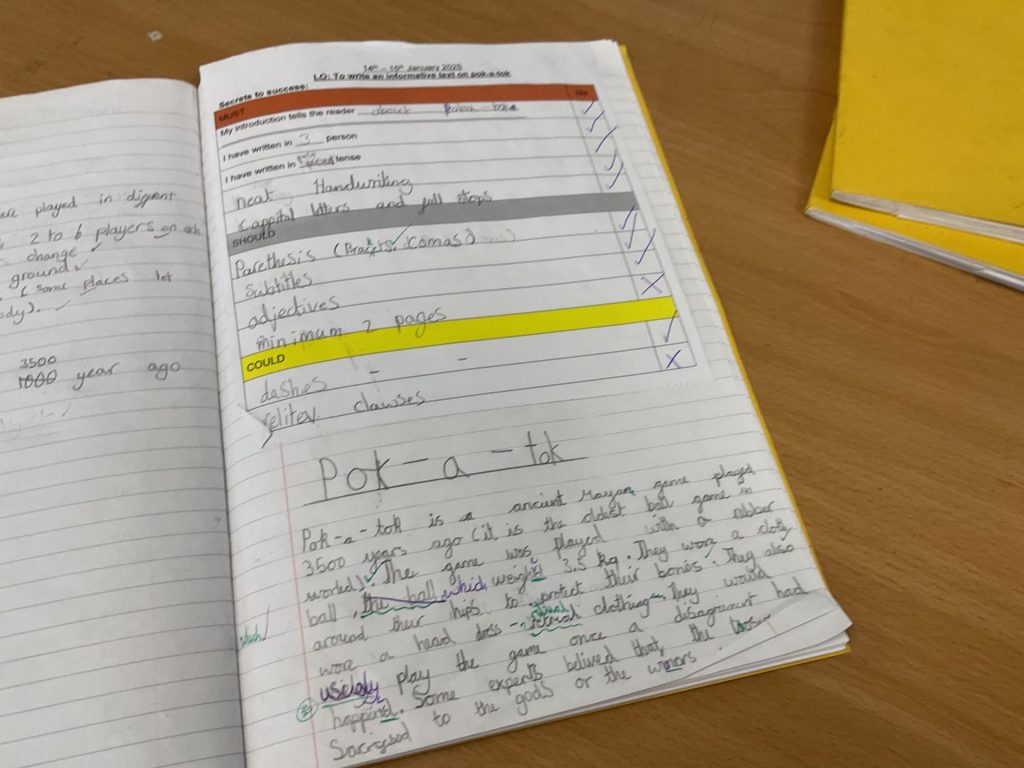 ere played in different
2 to 6 players on each
change
ground
(Some places let
ody).
3500
1000 year ago
14th – 15th January 2025
LO: To write an informative text on pok-a-tok
Secrets to success:
MUST Me
My introduction tells the reader about
I have written in 3 person
I have written in tense
neat Handwriting
cappital letters and full stops
SHOULD
Parethesis (Brackets, Comas)
Subtitles
adjectives
minimum 2 pages
COULD
dashes -
relitev clauses
Pok-a-tok
Pok-a-tok is a ancient Mayan game played
3500 years ago (it is the oldest ball game in
world). The game was played with a rubber
ball, the ball which weight 3.5 kg. They wore a cloth
around their hips to protect their bones. They also
wore a head dress - clothing. They would
usely play the game once a disagrment had
happind. Some experts belived that, the
Sacrifised to the gods or the winers